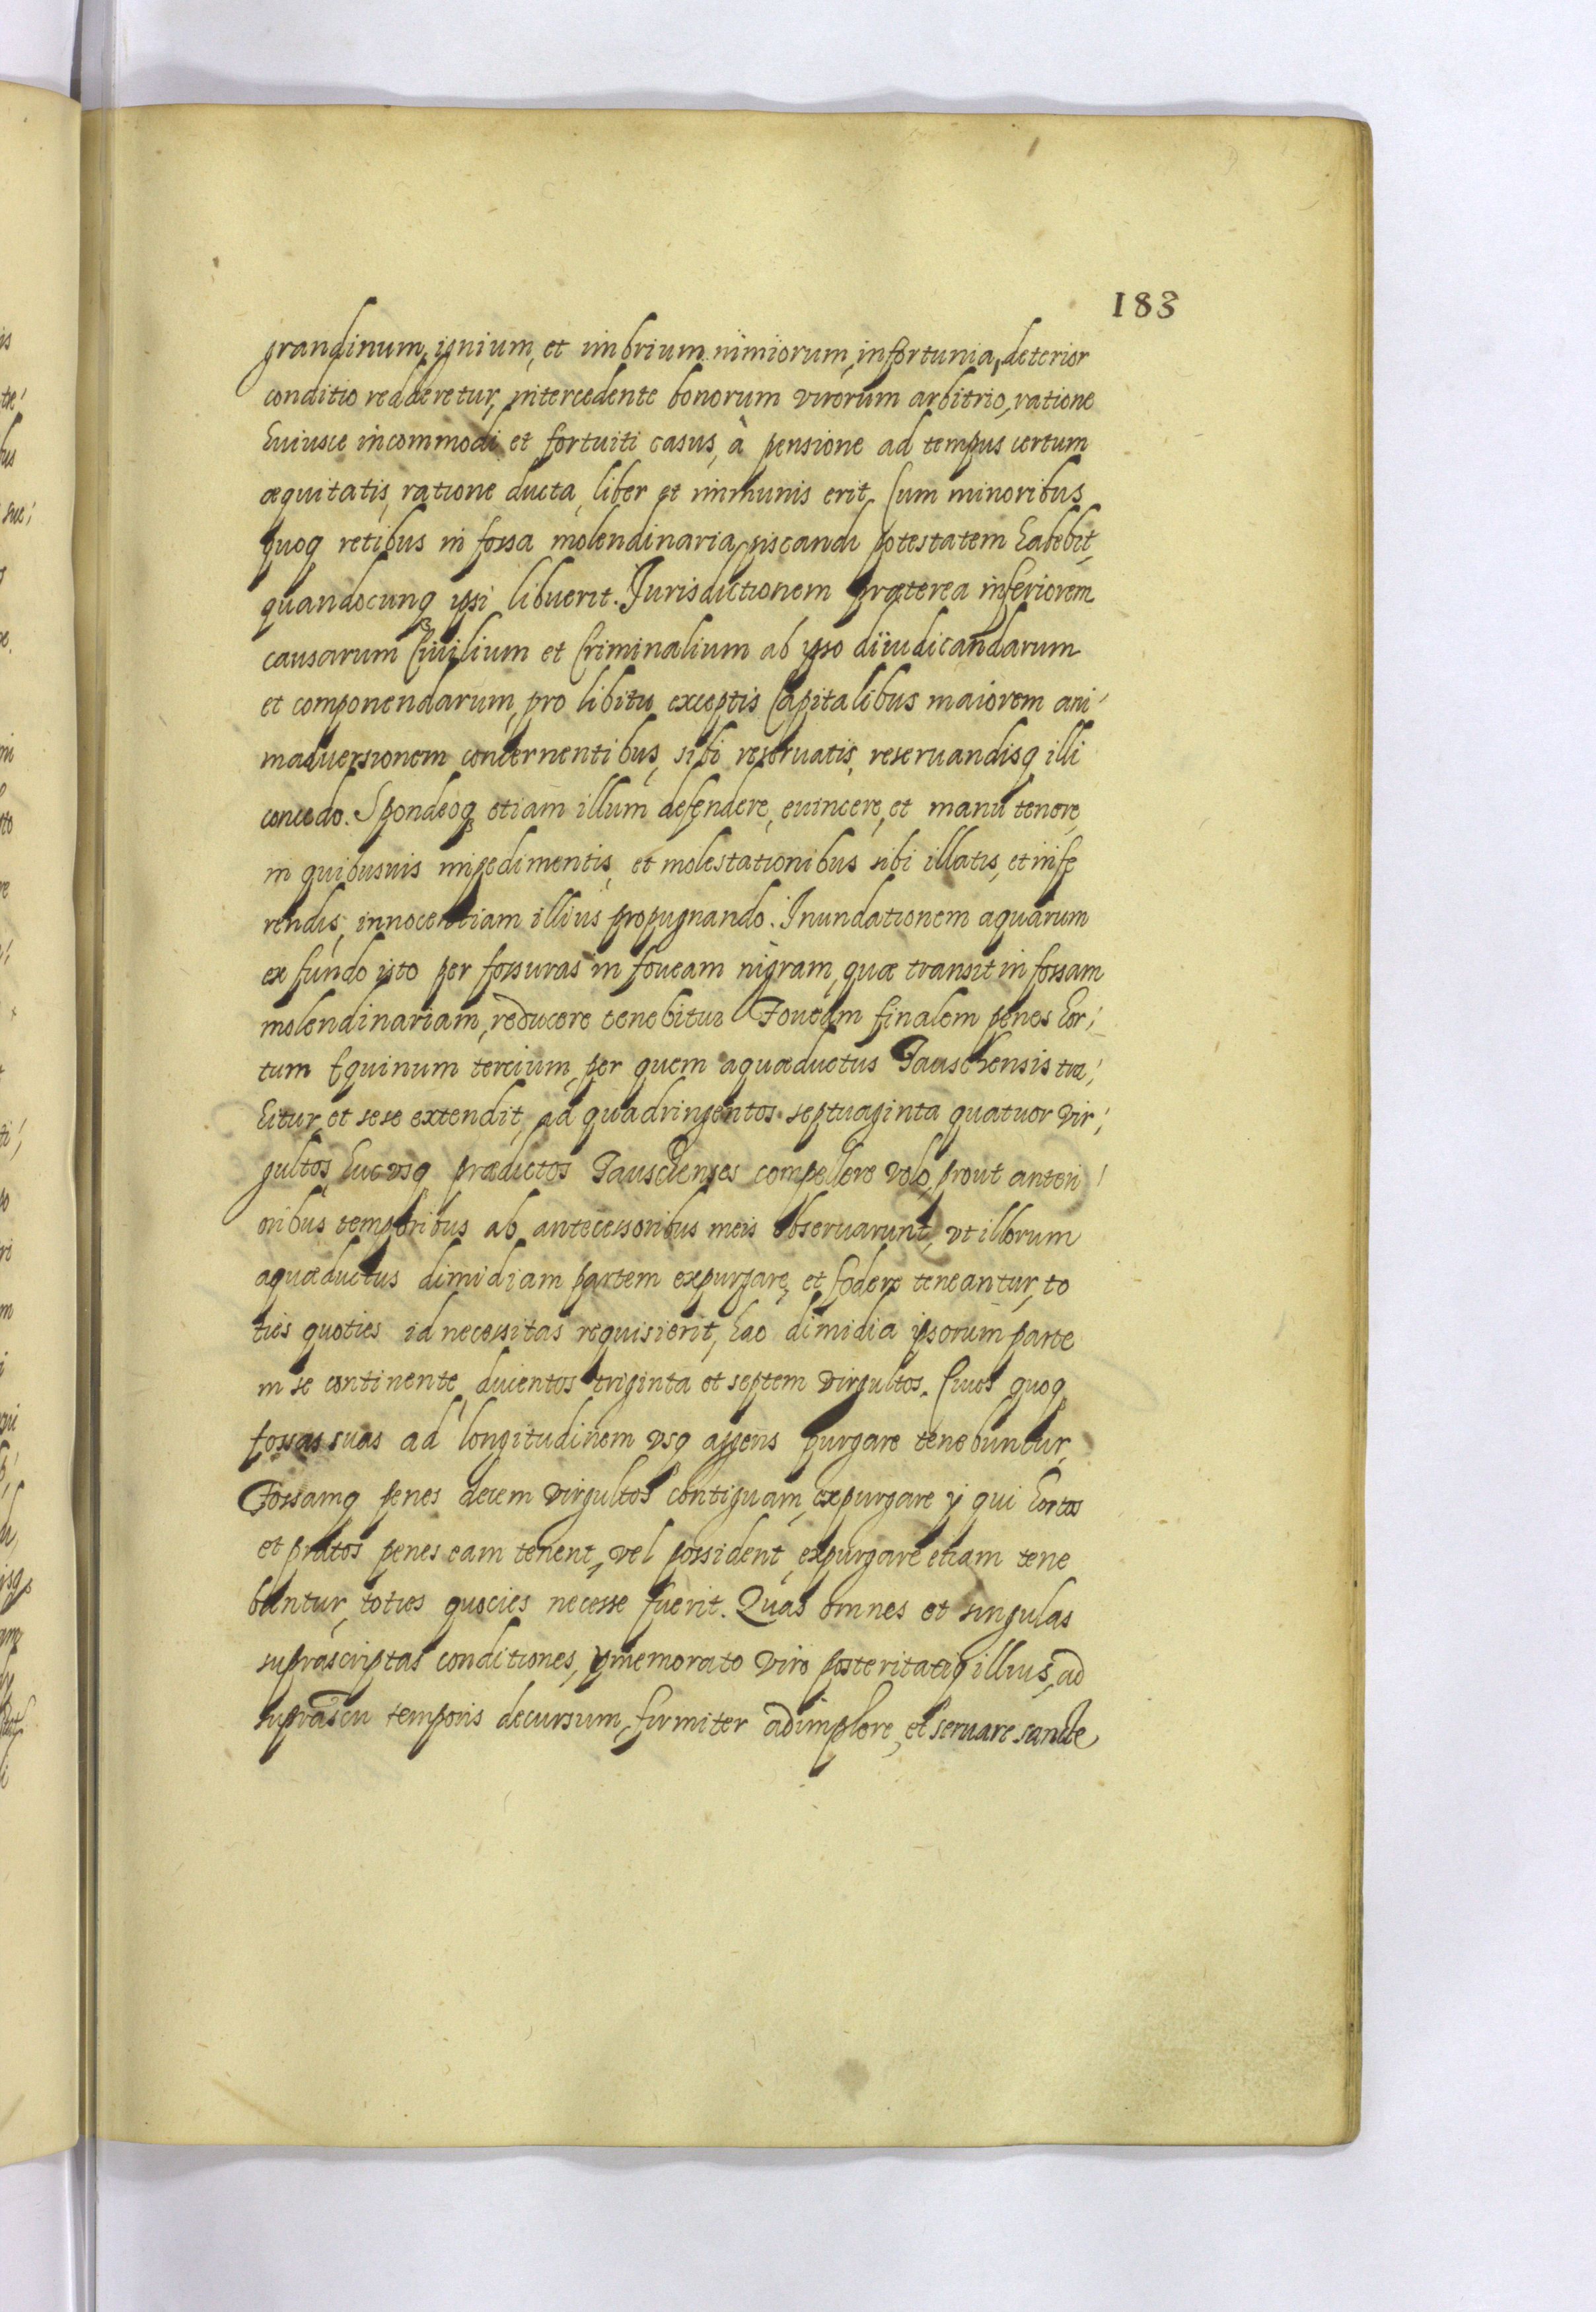 183
grandinum, ignium, et imbrium nimiorum, infortunia, deterior
conditio redderetur, intercedente bonorum virorum arbitrio, ratione
huiusce incommodi et fortuiti casus, à pensione ad tempus certum
æquitatis, ratione ducta, liber et immunis erit. Cum minoribus
quoq retibus in fossa molendinaria piscandi potestatem habebit,
quandocunq ipsi libuerit. Jurisdictionem præterea inferiorem
causarum Ciuilium et Criminalium ab ipso diiudicandarum
et componendarum, pro libitu exceptis Capitalibus maiorem ani,
maduersionem concernentibus, sibi reseruatis, reseruandisq illi
concedo. Spondeoq etiam illum defendere, euincere, et manu tenere,
in quibusuis impedimentis, et molestationibus sibi illatis, et infe
rendis, innocentiam illius propugnando. Inundationem aquarum
ex fundo isto per fossuras in foueam nigram, quæ transit in fossam
molendinariam, reducere tenebitur Foueam finalem penes hor,
tum Equinum tercium, per quem aquæductus Tauschensis tra,
hitur, et sese extendit, ad quadringentos septuaginta quatuor vir,
gultos huc vsq prædictos Tauschenses compellere volo, prout anteri,
oribus temporibus ab antecessoribus meis obseruarunt, vt illorum
aquæductus dimidiam partem expurgare, et fodere teneantur, to
ties quoties id necessitas requisierit, hac dimidia ipsorum parte
in se continente, ducentos triginta et septem virgultos. Ciues quoq
fossas suas ad longitudinem vsq aggeris purgare tenebuntur,
Fossamq penes decem virgultos contiguam, expurgare ij qui hortos
et pratos penes eam tenent, vel possident, expurgare etiam tene
buntur, toties quocies necesse fuerit. Quas omnes et singulas
suprascriptas conditiones, pmemorato viro posteritatiq illius, ad
suprascri temporis decursum, firmiter adimplere, et seruare sancte